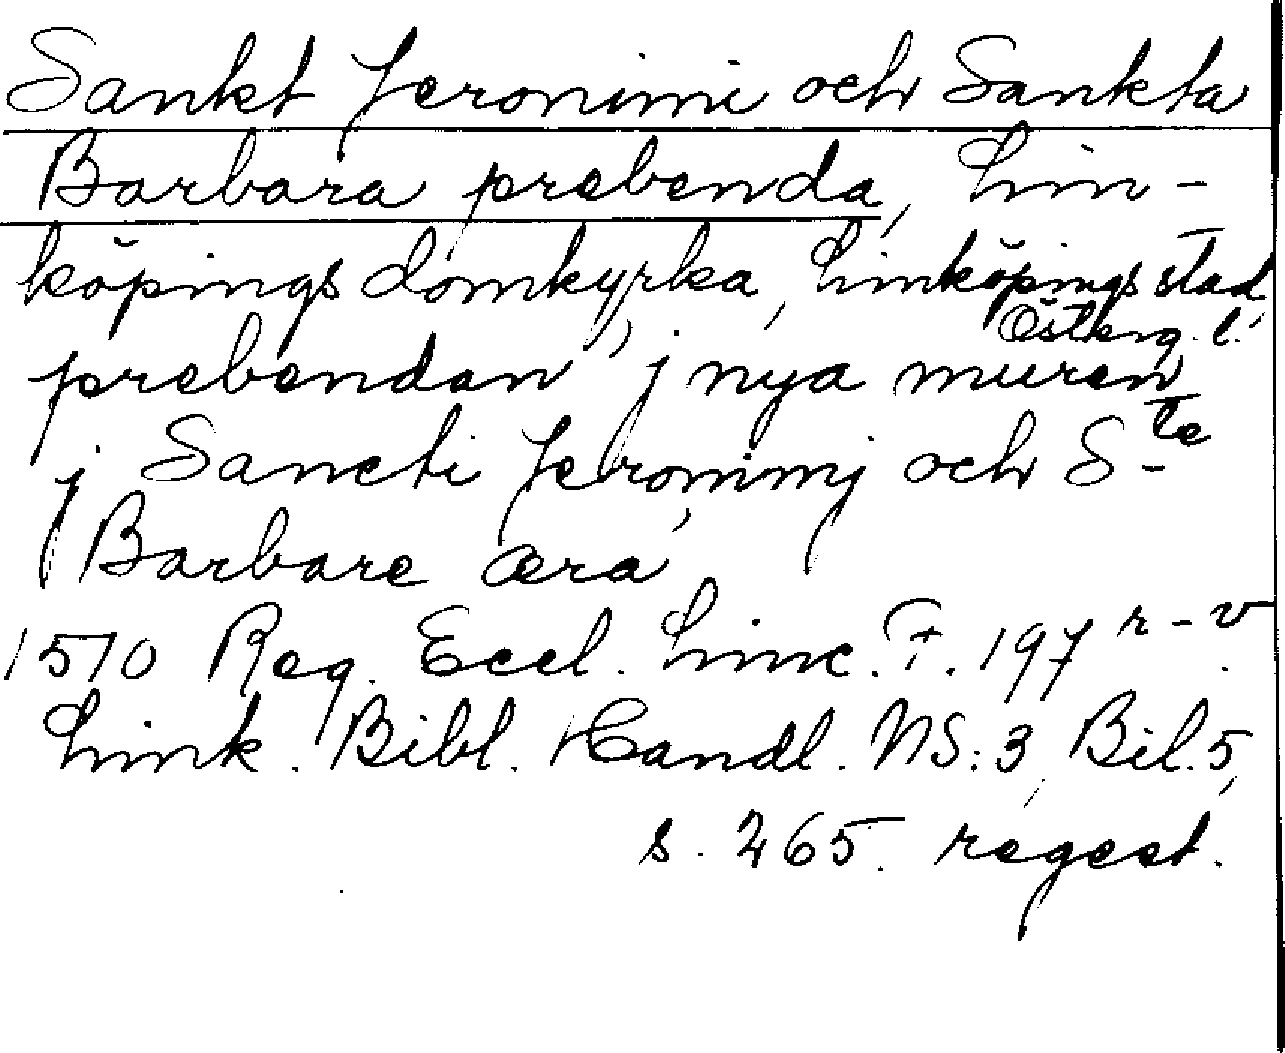 Sankt Jeronimi och Sankta
Barbara prebenda, Lin-
köpings domkyrka, Linköpings stad,
Österg. l.
prebendan j nya muren,
j Sancti Jeronimj och S-te
Barbare æra
1510 Reg. Eccl. Linc. F. 197 r-v.
Link. Bibl. Handl. NS:3, Bil. 5,
s. 265. regest.